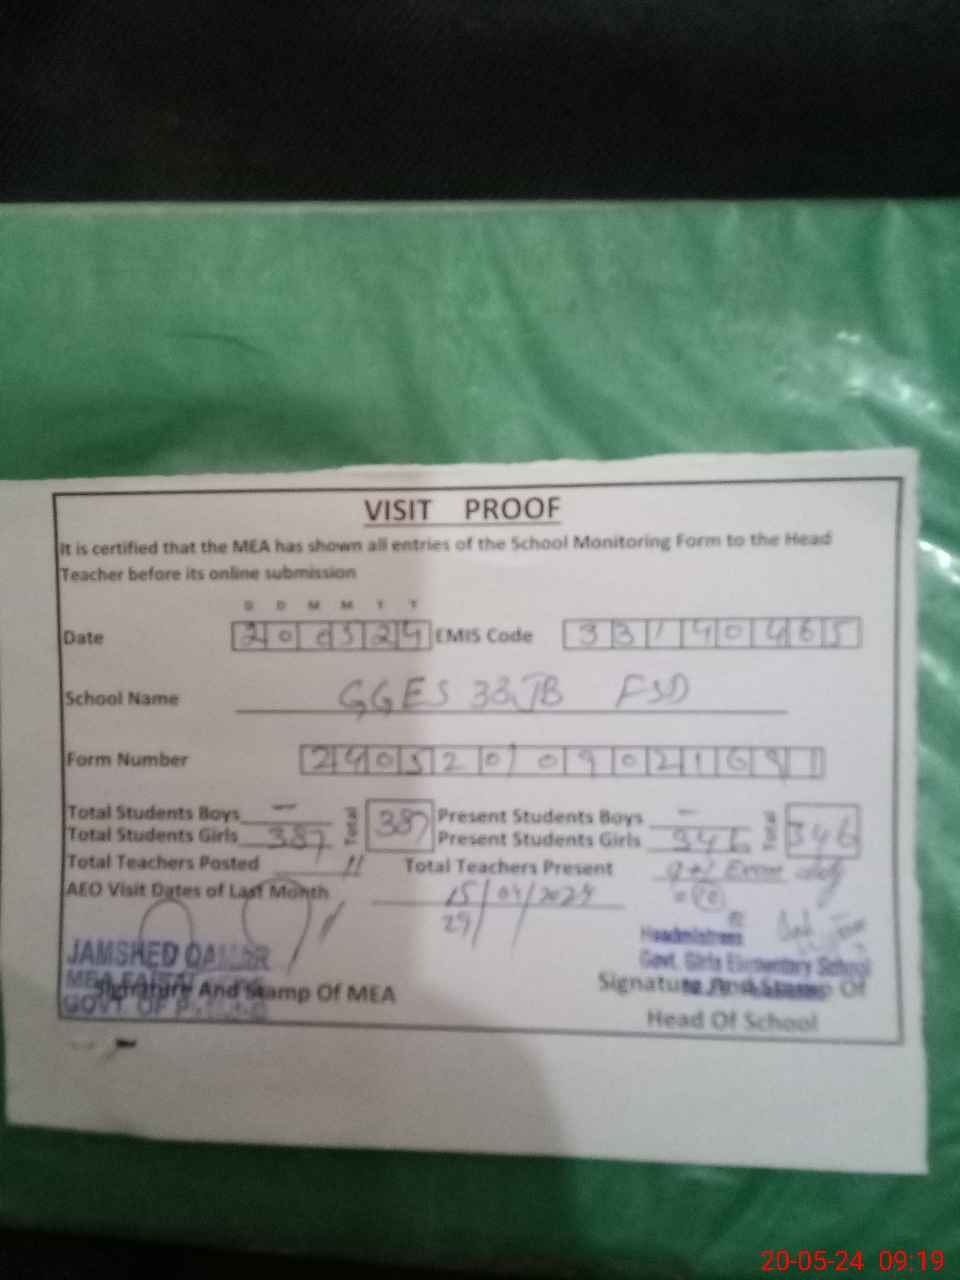 VISIT PROOF
It is certified that the MEA has shown all entries of the School Monitoring Form to the Head
Teacher before its online submission
D D M M Y Y
Date 200524 EMIS Code 33140465
School Name GGES 33JB FSD
Form Number
Total Students Boys — Total 387 Present Students Boys — Total 346
Total Students Girls 387 Present Students Girls 346
Total Teachers Posted 11 Total Teachers Present 9+1
AEO Visit Dates of Last Month 15/04/2024 =10
29/
JAMSHED QAMAR Headmistress
MEA Govt. Girls Elementary School
Signature And Stamp Of MEA Signature And Stamp Of
GOVT. OF Head Of School
20-05-24 09:19